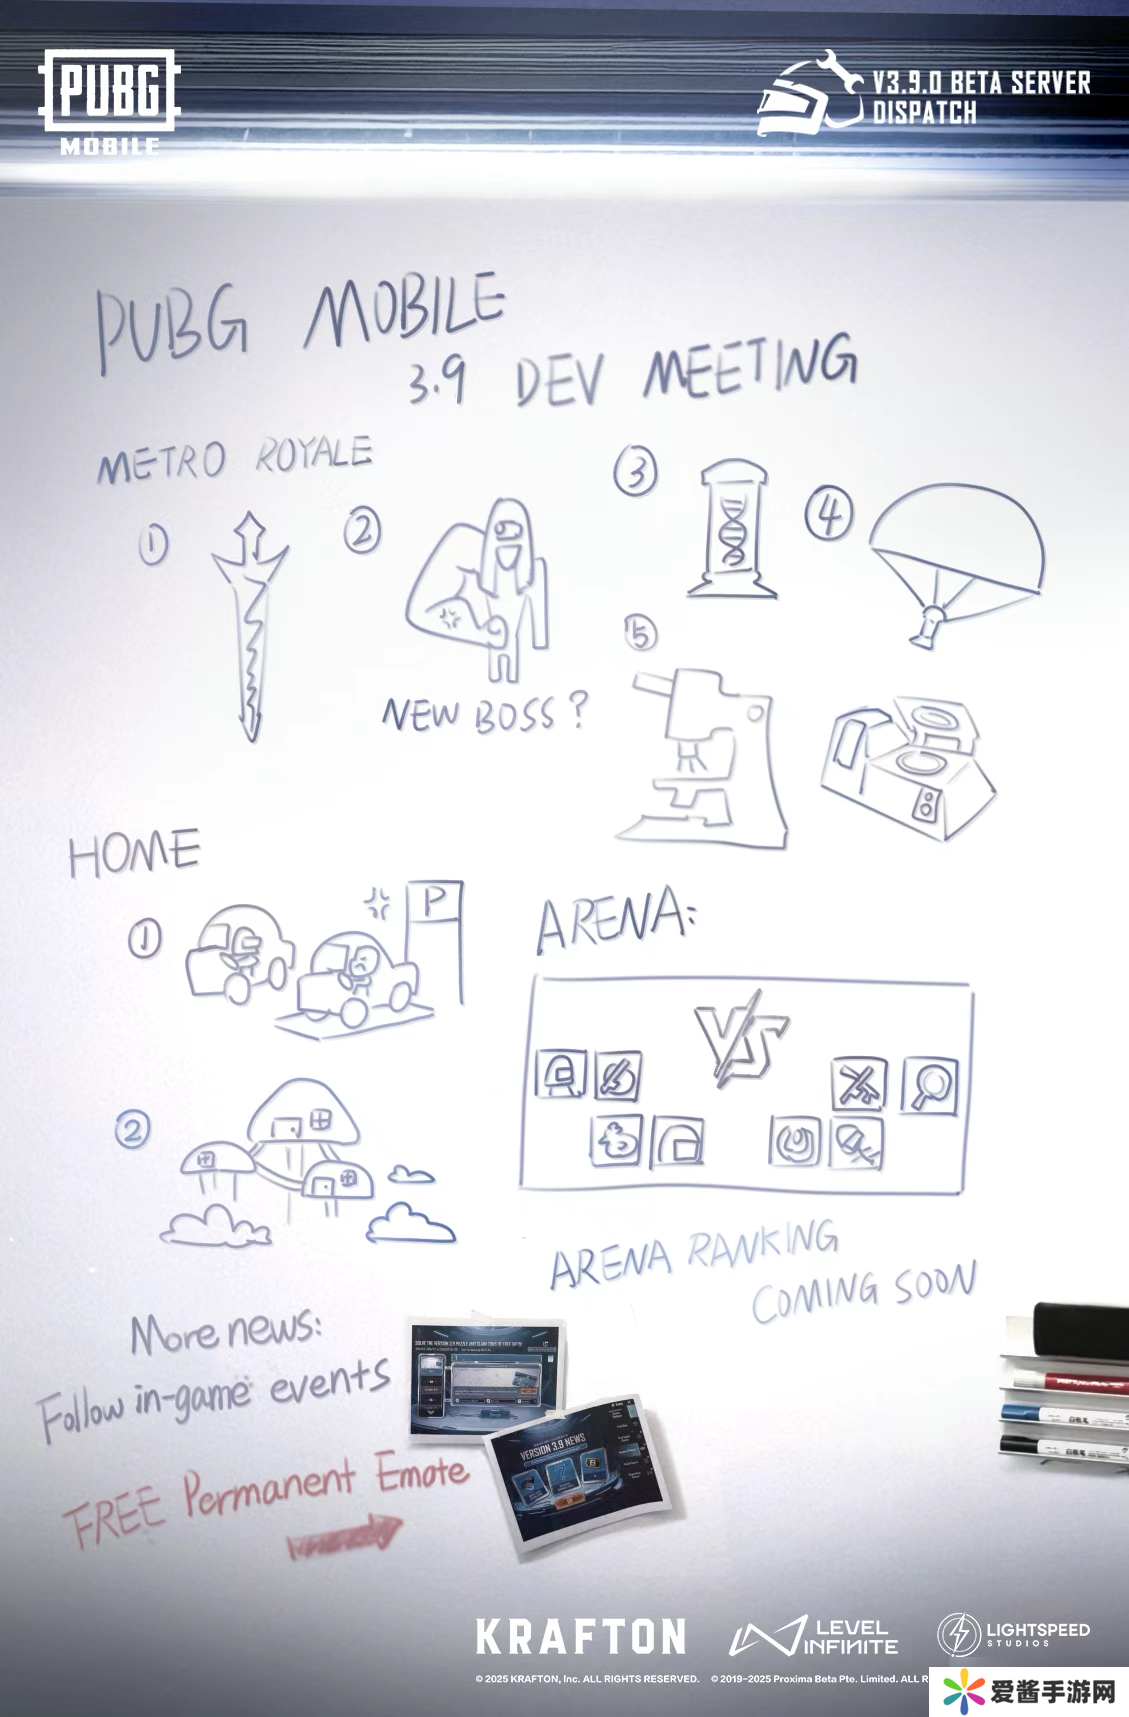 PUBG
MOBILE
V3.9.0 BETA SERVER
DISPATCH
PUBG MOBILE
3.9 DEV MEETING
METRO ROYALE
①
②
NEW BOSS?
③
④
⑤
HOME
①
P
②
ARENA:
VS
ARENA RANKING
COMING SOON
More news:
Follow in-game events
FREE Permanent Emote
VERSION 3.9 NEWS
KRAFTON
LEVEL
INFINITE
LIGHTSPEED
STUDIOS
© 2025 KRAFTON, Inc. ALL RIGHTS RESERVED.
© 2019-2025 Proxima Beta Pte. Limited. ALL R
爱酱手游网